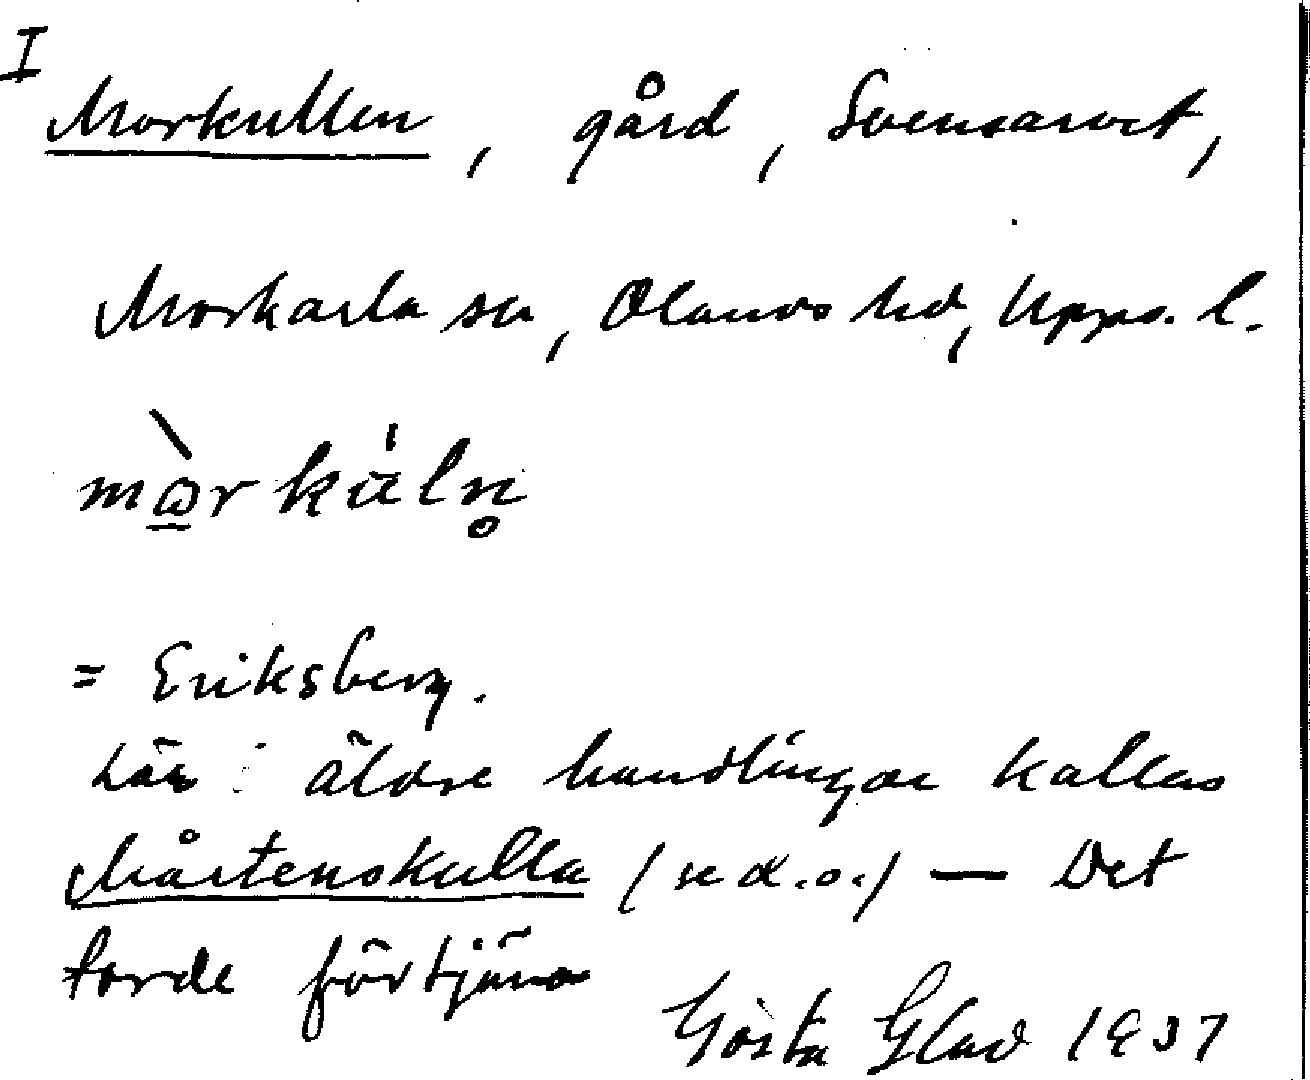 I
Morkullen, gård, Svensarvet,
Morkarla sn, Olands hd, Upps. l.
mɷ̀rkʉ́ln̥
= Eriksberg.
Lär i äldre handlingar kallas
Mårtenskulla (se d.o.) — Det
torde förtjäna
Gösta Glad 1937